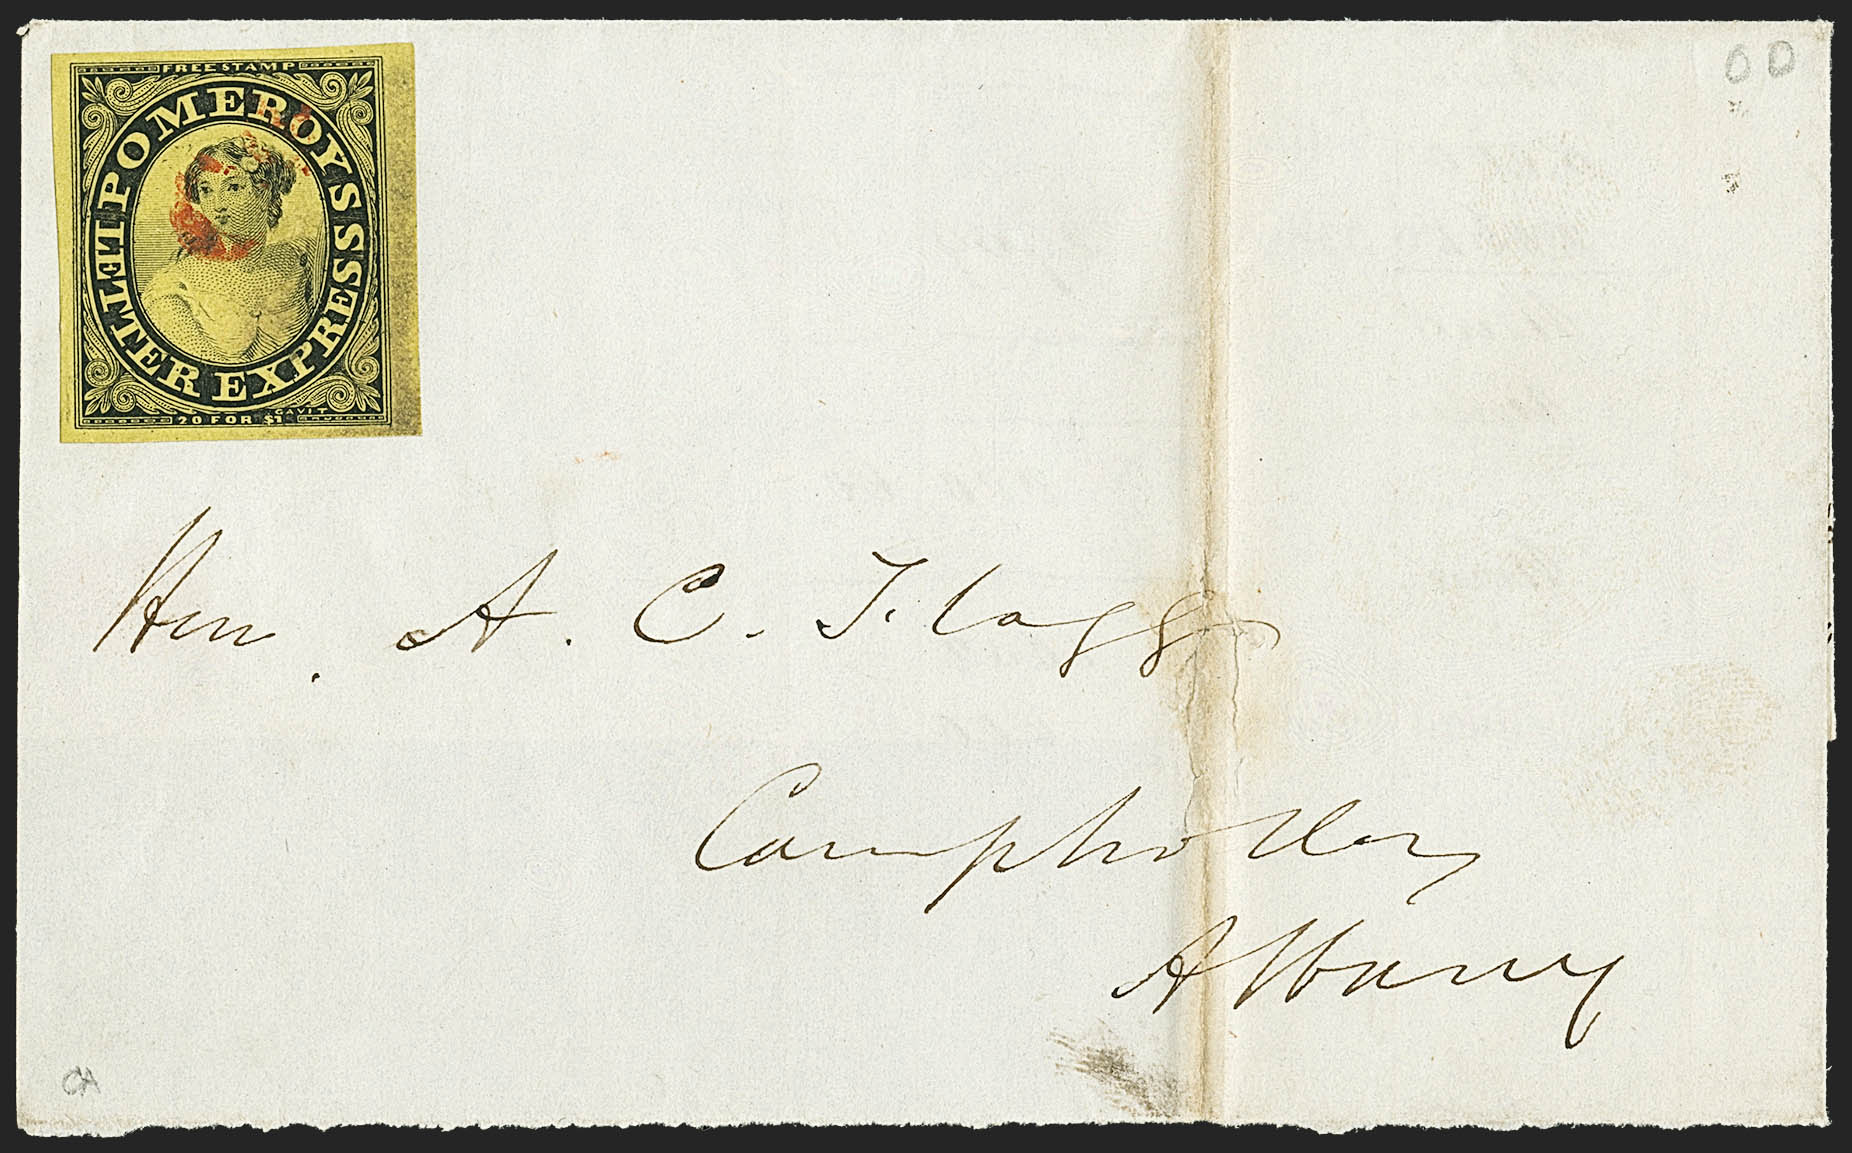 FREE STAMP
POMEROYS
LETTER EXPRESS
GAVIT
20 FOR $1
Hon. A. C. Flagg
Comptroller
Albany
OD
CA